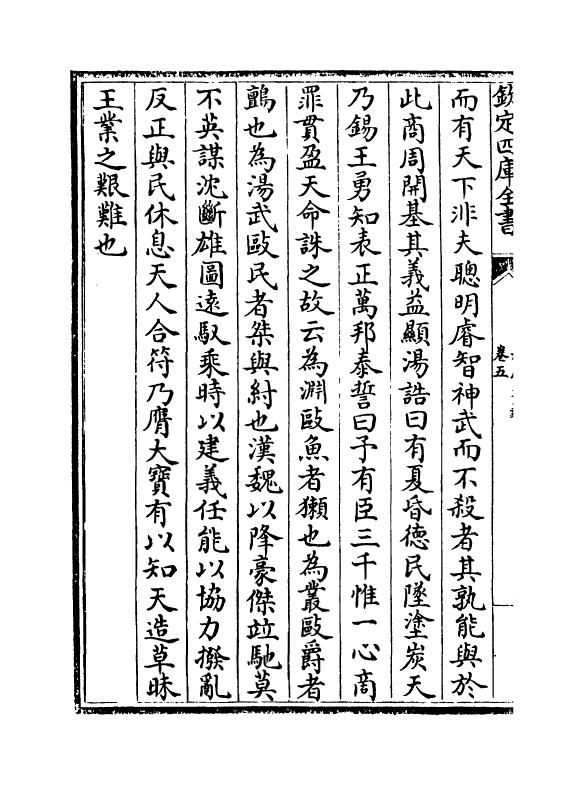 欽定四庫全書
卷五
而有天下非夫聰明睿智神武而不殺者其孰能與於
此商周開基其義益顯湯誥曰有夏昏德民墜塗炭天
乃錫王勇知表正萬邦泰誓曰予有臣三千惟一心商
罪貫盈天命誅之故云為淵敺魚者獺也為叢敺爵者
鸇也為湯武敺民者桀與紂也漢魏以降豪傑竝馳莫
不英謀沈斷雄圖遠馭乘時以建義任能以協力撥亂
反正與民休息天人合符乃膺大寶有以知天造草昧
王業之艱難也